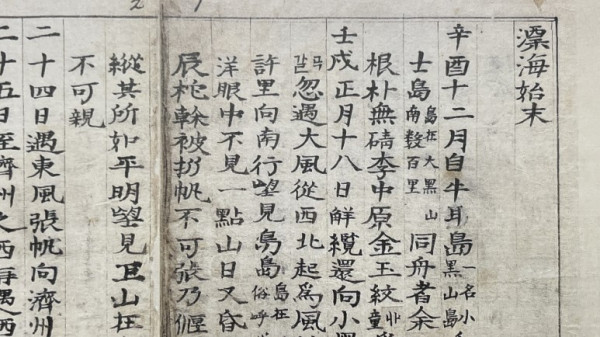 漂海始末
辛酉十二月自牛耳島一名小黑山島
士島島在大黑山南數百里同舟者余
根朴無碃李中原金玉紋童
壬戌正月十八日解纜還向小
忽遇大風從西北起爲風
許里向南行望見島島在俗呼
洋眼中不見一點山日又昏
辰柁被打帆不可張乃偃
縱其所如平明望見山在
不可親
二十四日遇東風張帆向濟州
二十五日至濟州之西再遇西